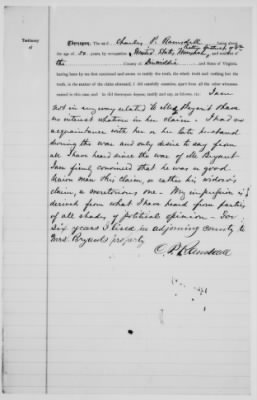 Testimony of
Thereupon, The said Charles P. Ramsdell
the age of 50 years, by occupation United States Marshal, and
the County of Dinwiddie and State of Virginia,
having been by me first cautioned and sworn, to testify the truth, the whole truth and nothing but the
truth, in the matter of the claim aforesaid, I did carefully examine, apart from all the other
witness named in this case: and he did thereupon depose, testify and say, as follows, viz: I am
not in any way related to Mrs Bryant I have
no interest whatever in her claim - I had no
acquaintance with her or her late husband
during the war and only desire to say from
all I have heard since the war of Mr Bryant
I am firmly convinced that he was a good
Union man this claim, or rather his widow's
claim, a meritorious one - My impression is
derived from what I have heard from parties
of all shades of political opinion - For
six years I lived in adjoining county to
Mrs. Bryant's property
C. P. Ramsdell